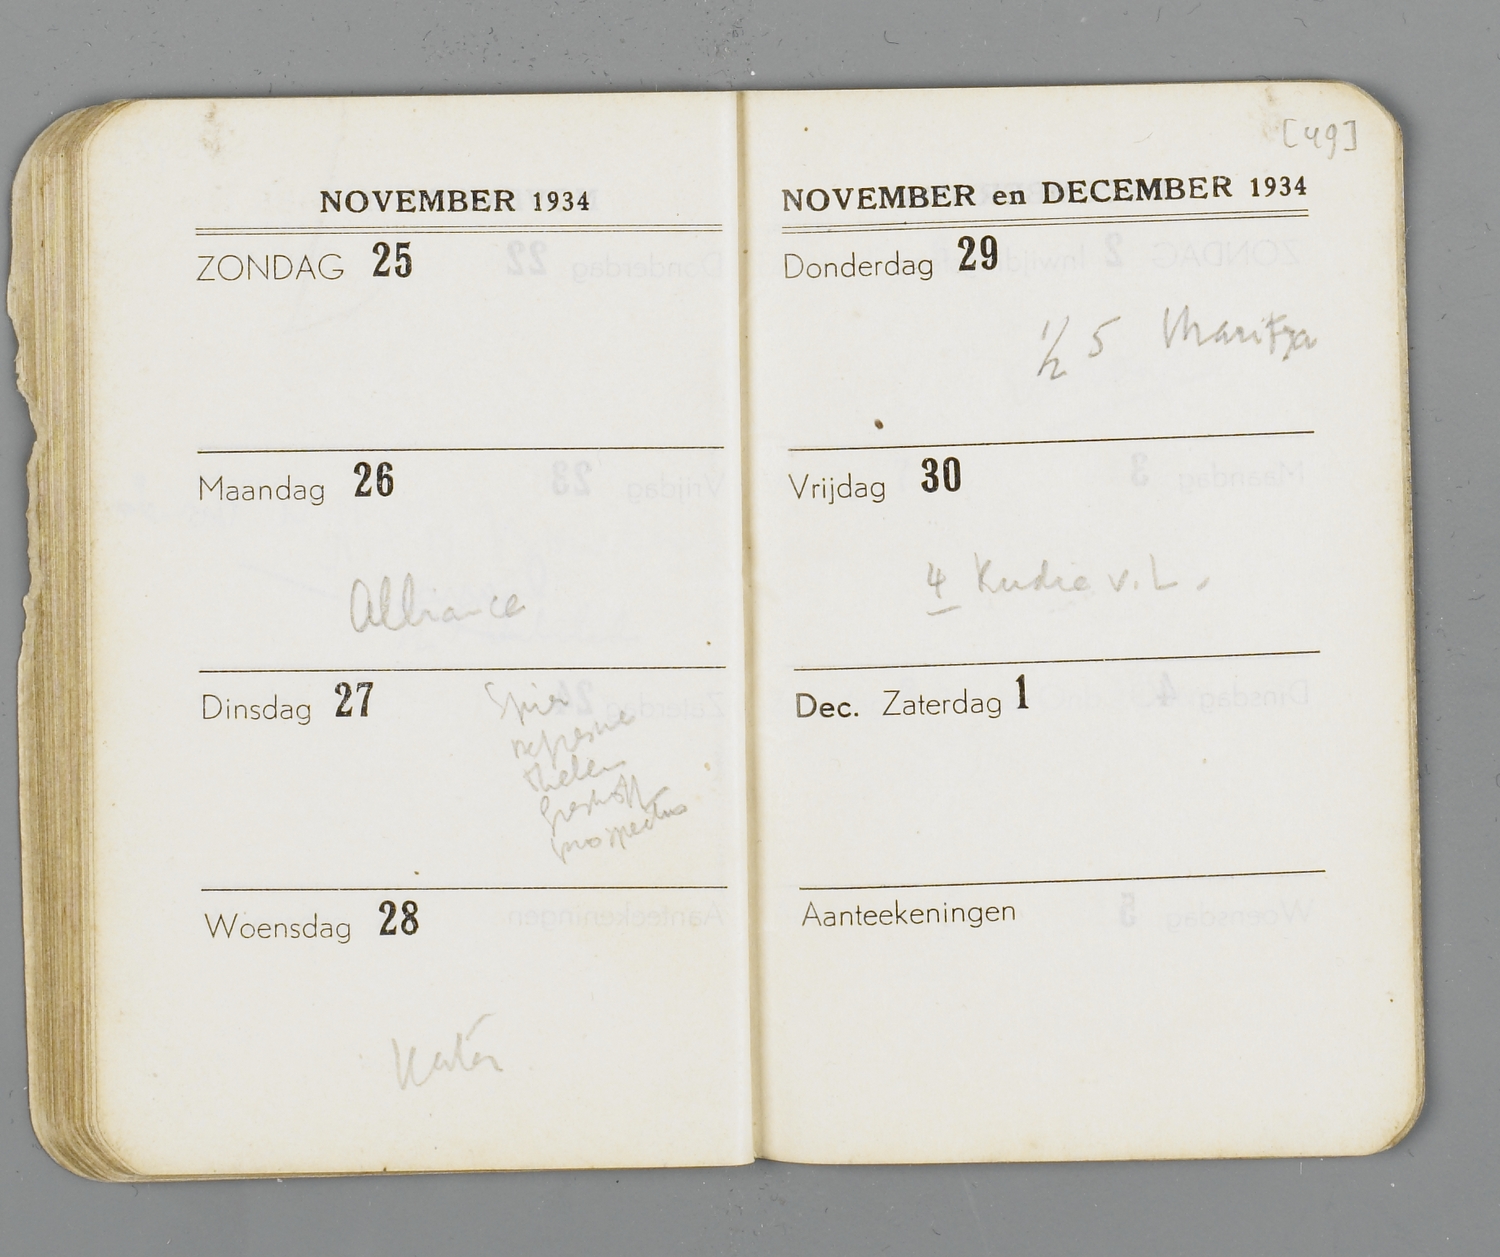 NOVEMBER 1934
ZONDAG 25
Maandag 26
Alliance
Dinsdag 27
prospectus
Woensdag 28
[49]
NOVEMBER en DECEMBER 1934
Donderdag 29
1/2 5 Maritza
Vrijdag 30
4 Kudie v. L.
Dec. Zaterdag 1
Aanteekeningen